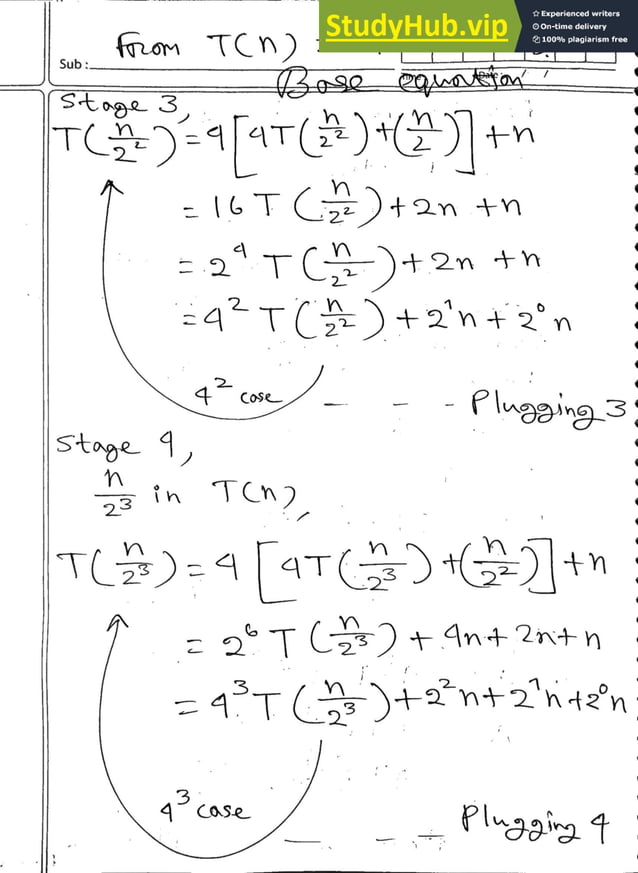 StudyHub.vip
☆ Experienced writers
On-time delivery
100% plagiarism free
From T(n) :
Sub :
Base equation
Stage 3,
T(n/2²) = 4[4T(n/2²) + (n/2)] + n
= 16 T(n/2²) + 2n + n
= 2⁴ T(n/2²) + 2n + n
= 4² T(n/2²) + 2¹n + 2⁰n
4² case
— - - Plugging 3
Stage 4,
n/2³ in T(n),
T(n/2³) = 4[4T(n/2³) + (n/2²)] + n
= 2⁶ T(n/2³) + 4n + 2n + n
= 4³ T(n/2³) + 2²n + 2¹n + 2⁰n
4³ case
— - - Plugging 4